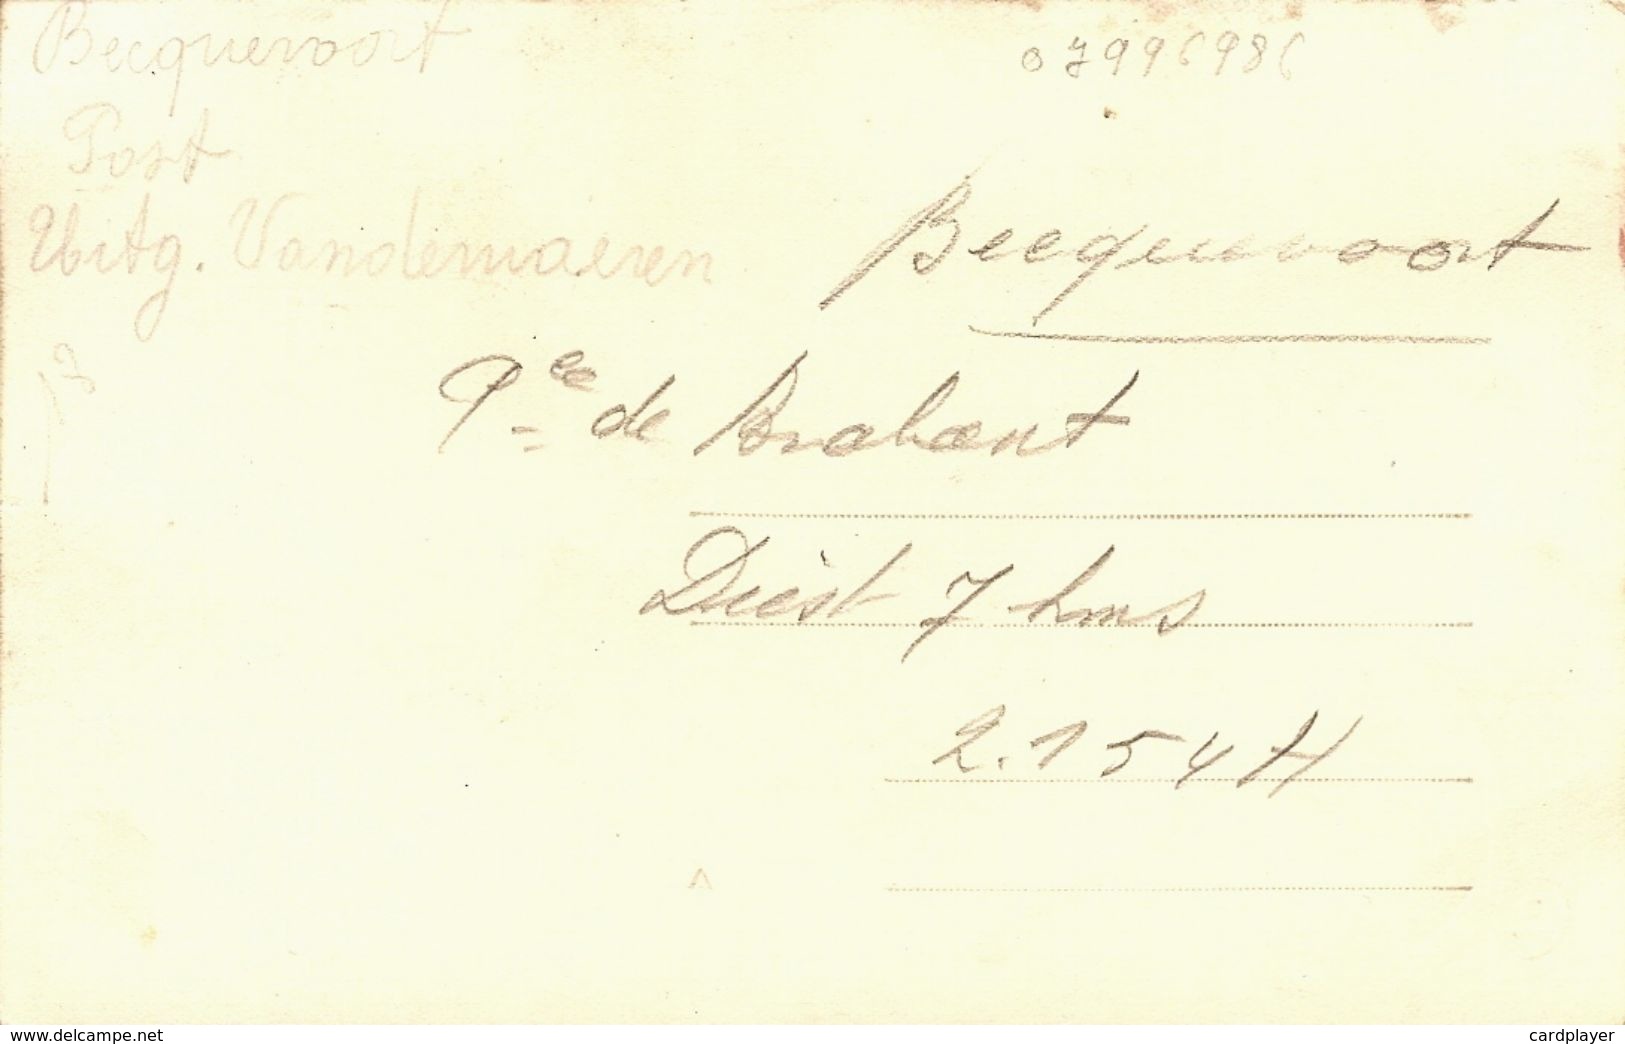 Becquevoort
Post
Uitg. Vandermaeren
07996986
Becquevoort
Pce de Brabant
Diest 7 kms
2.154 H
delcampe.net
cardplayer